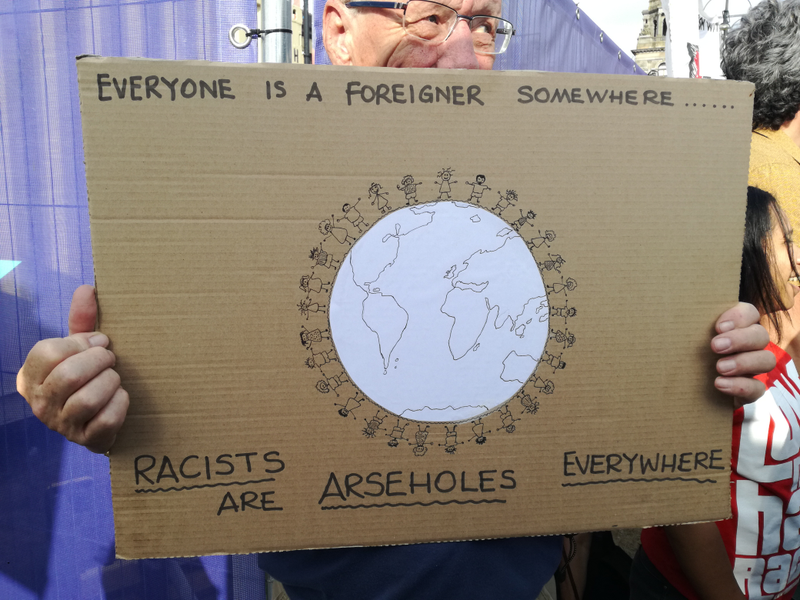 EVERYONE IS A FOREIGNER SOMEWHERE ......
RACISTS
ARE ARSEHOLES EVERYWHERE